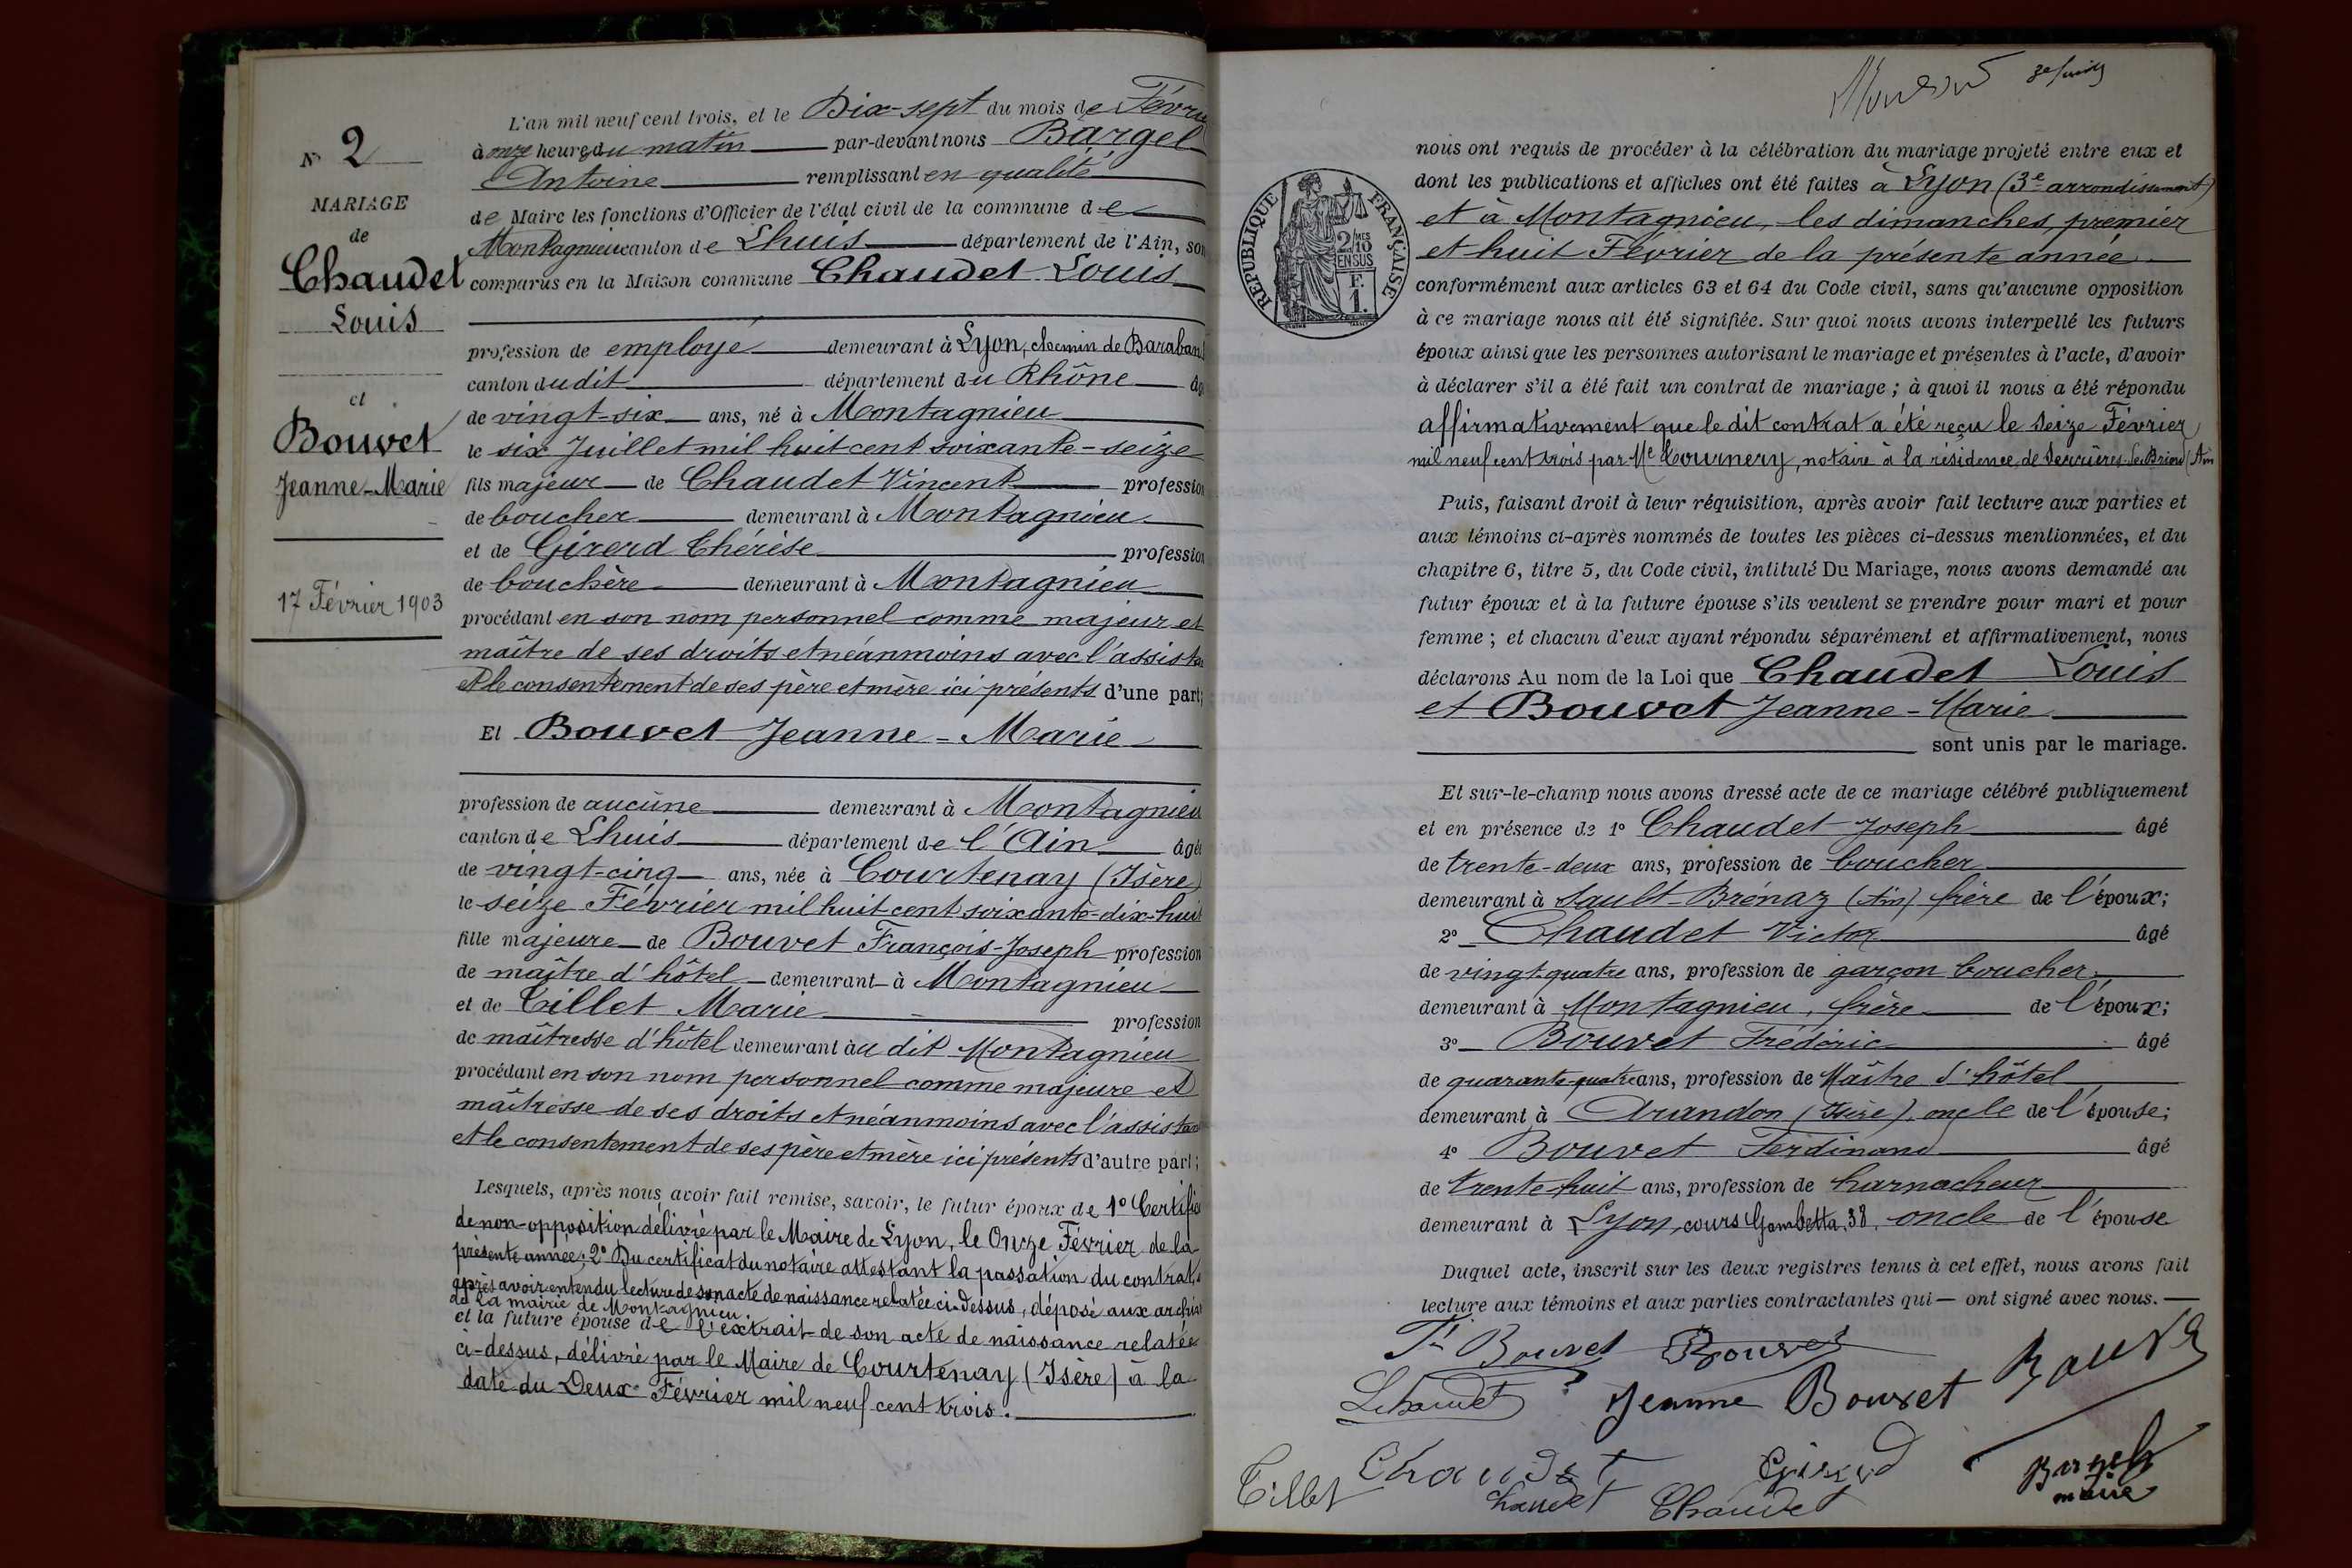 N° 2
MARIAGE
de
Chaudet
Louis
et
Bouvet
Jeanne-Marie
17 Février 1903
L'an mil neuf cent trois, et le Dix-sept du mois de Févrie
à onze heures du matin par-devant nous Bargel
Antoine remplissant en qualité
de Maire les fonctions d'Officier de l'état civil de la commune de
Montagnieu canton de Lhuis département de l'Ain, son
comparus en la Maison commune Chaudet Louis
profession de employé demeurant à Lyon, chemin de Baraban
canton dudit département du Rhône âg
de vingt-six ans, né à Montagnieu
le six Juillet mil huit cent soixante-seize
fils majeur de Chaudet Vincent profession
de boucher demeurant à Montagnieu
et de Girerd Thérèse profession
de bouchère demeurant à Montagnieu
procédant en son nom personnel comme majeur et
maître de ses droits et néanmoins avec l'assista
et le consentement de ses père et mère ici présents d'une part;
Et Bouvet Jeanne-Marie
profession de aucune demeurant à Montagnieu
canton de Lhuis département de l'Ain âgée
de vingt-cinq ans, née à Courtenay (Isère)
le seize Février mil huit cent soixante-dix-huit
fille majeure de Bouvet François-Joseph profession
de maître d'hôtel demeurant à Montagnieu
et de Tillet Marie profession
de maîtresse d'hôtel demeurant au dit Montagnieu
procédant en son nom personnel comme majeure et
maîtresse de ses droits et néanmoins avec l'assistan
et le consentement de ses père et mère ici présents d'autre part;
Lesquels, après nous avoir fait remise, savoir, le futur époux de 1° Certifica
de non-opposition délivré par le Maire de Lyon, le Onze Février de la
présente année; 2° Du certificat du notaire attestant la passation du contrat,
après avoir entendu lecture de son acte de naissance relatée ci-dessus, déposé aux archive
de la mairie de Montagnieu.
et la future épouse de l'extrait de son acte de naissance relatée
ci-dessus, délivré par le Maire de Courtenay (Isère) à la
date du Deux Février mil neuf cent trois.
RÉPUBLIQUE FRANÇAISE
2/10 MES
EN SUS
F.
1.
nous ont requis de procéder à la célébration du mariage projeté entre eux et
dont les publications et affiches ont été faites à Lyon (3e arrondissement)
et à Montagnieu, les dimanches, premier
et huit Février de la présente année
conformément aux articles 63 et 64 du Code civil, sans qu'aucune opposition
à ce mariage nous ait été signifiée. Sur quoi nous avons interpellé les futurs
époux ainsi que les personnes autorisant le mariage et présentes à l'acte, d'avoir
à déclarer s'il a été fait un contrat de mariage; à quoi il nous a été répondu
affirmativement que le dit contrat a été reçu le seize Février
mil neuf cent trois par Me Cournery, notaire à la résidence de Serrières-de-Briord (Ain
Puis, faisant droit à leur réquisition, après avoir fait lecture aux parties et
aux témoins ci-après nommés de toutes les pièces ci-dessus mentionnées, et du
chapitre 6, titre 5, du Code civil, intitulé Du Mariage, nous avons demandé au
futur époux et à la future épouse s'ils veulent se prendre pour mari et pour
femme; et chacun d'eux ayant répondu séparément et affirmativement, nous
déclarons Au nom de la Loi que Chaudet Louis
et Bouvet Jeanne-Marie
sont unis par le mariage.
Et sur-le-champ nous avons dressé acte de ce mariage célébré publiquement
et en présence de 1° Chaudet Joseph âgé
de trente-deux ans, profession de boucher
demeurant à Sault-Brénaz (Ain) frère de l'époux;
2° Chaudet Victor âgé
de vingt-quatre ans, profession de garçon boucher
demeurant à Montagnieu, frère de l'époux;
3° Bouvet Frédéric âgé
de quarante-quatre ans, profession de Maître d'hôtel
demeurant à Arandon (Isère), oncle de l'épouse;
4° Bouvet Ferdinand âgé
de trente-huit ans, profession de harnacheur
demeurant à Lyon, cours Gambetta, 38, oncle de l'épouse
Duquel acte, inscrit sur les deux registres tenus à cet effet, nous avons fait
lecture aux témoins et aux parties contractantes qui — ont signé avec nous. —
Fr Bouvet Bouvet Bouvet
LChaudet Jeanne Bouvet
Tillet Chaudet Girerd Bargel
Chaudet Chaudet maire